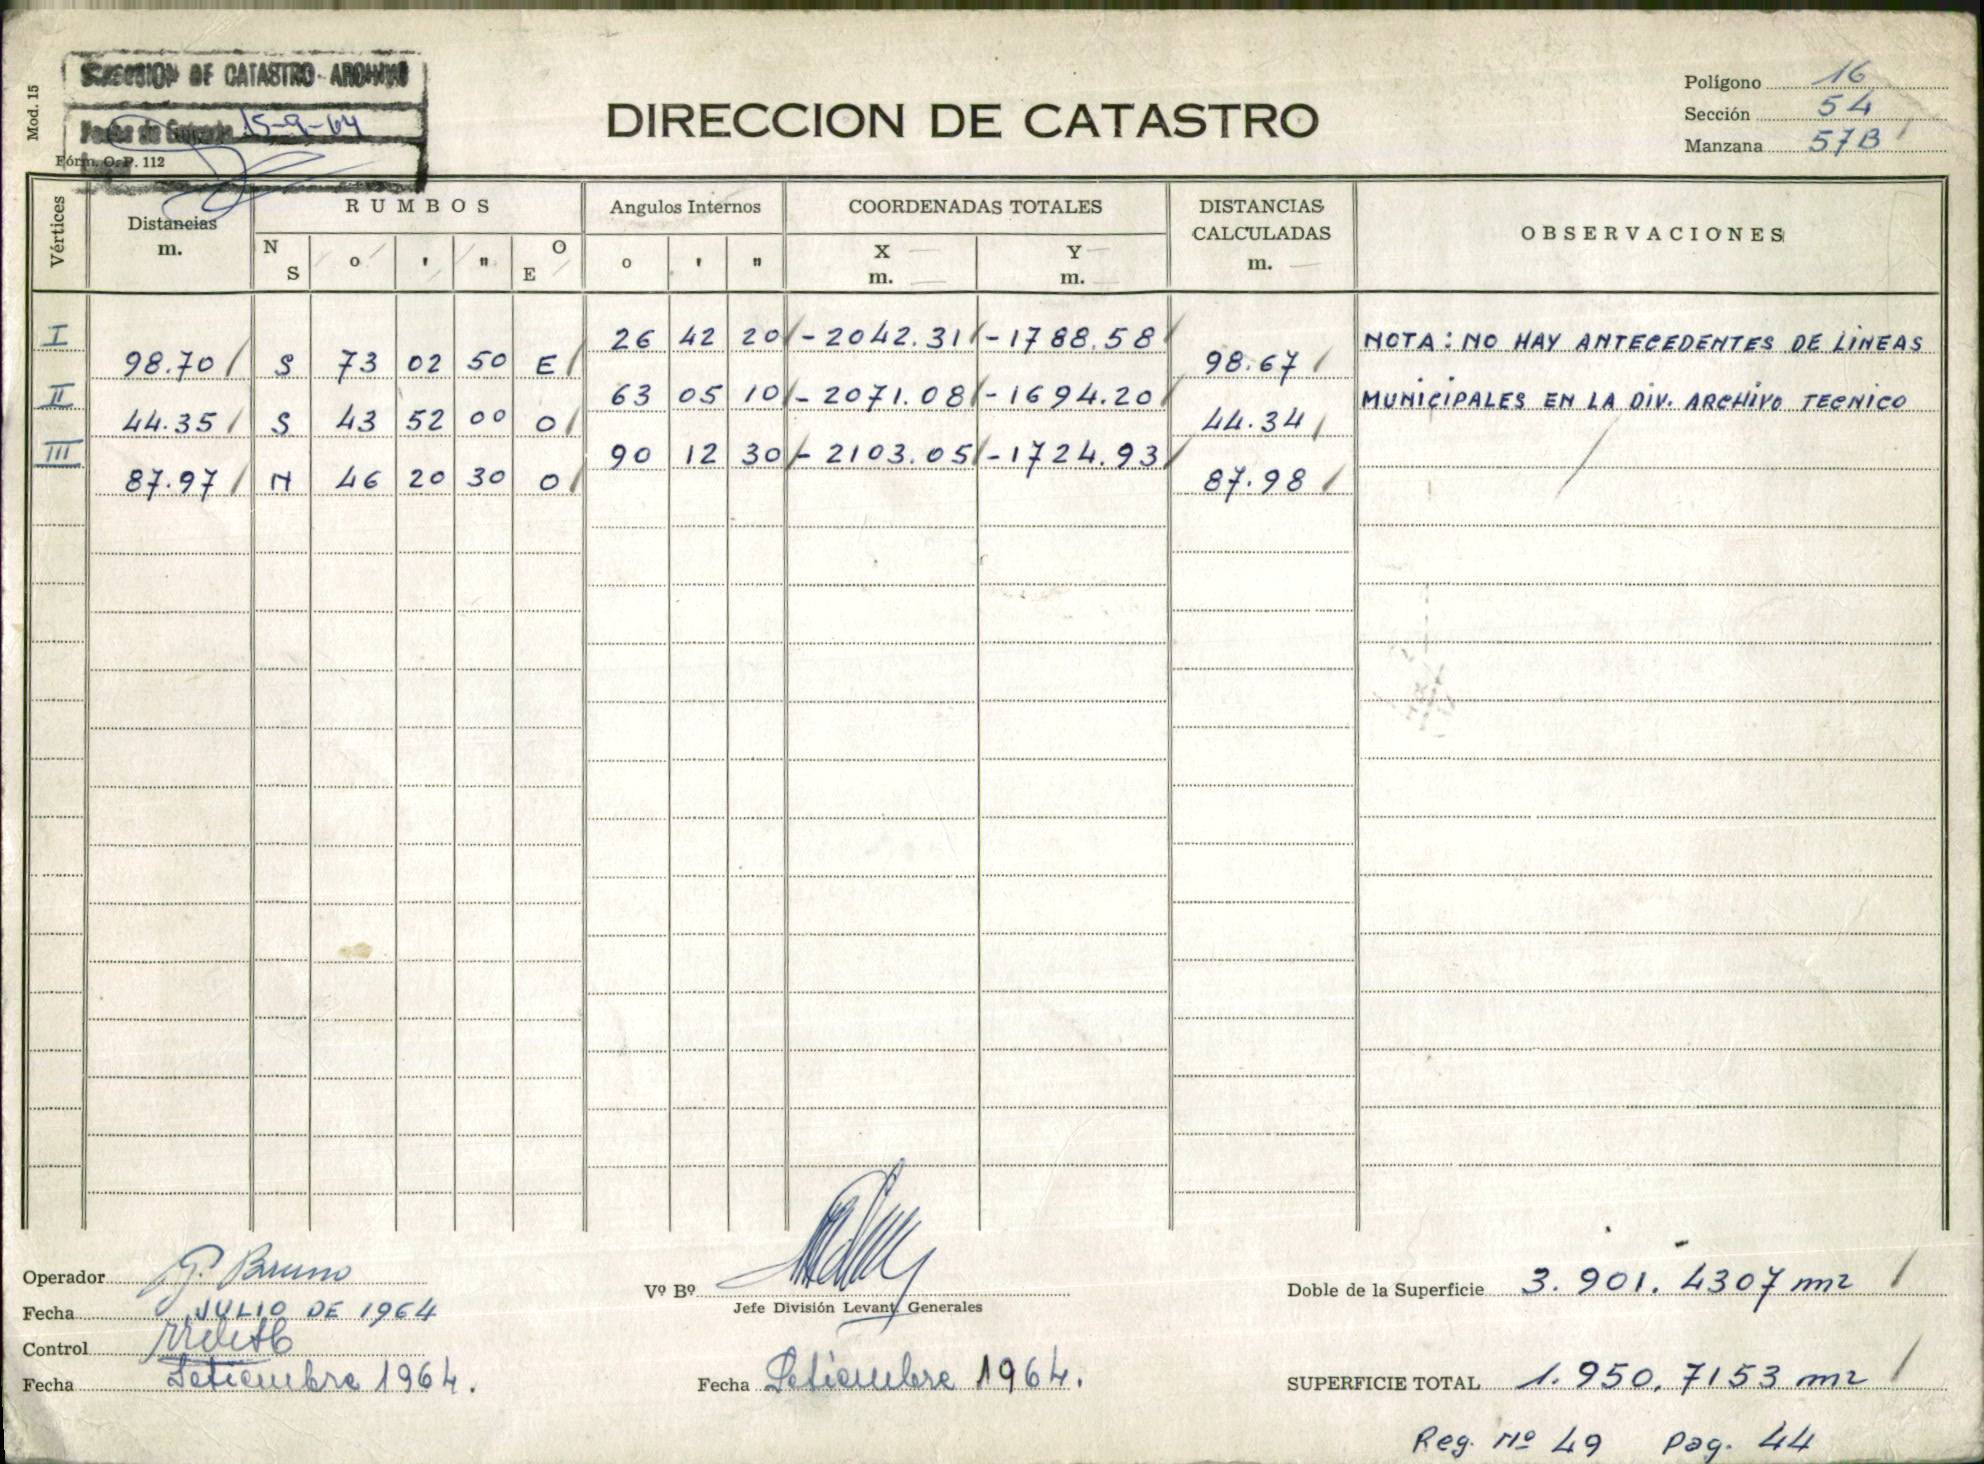 Mod. 15
DIRECCION DE CATASTRO - ARCHIVO
Fecha de Entrada 15-9-64
Fórm. O. P. 112
DIRECCION DE CATASTRO
Polígono 16
Sección 54
Manzana 57B
Vértices
Distancias
m.
RUMBOS
N S o ' " O E
Angulos Internos
o ' "
COORDENADAS TOTALES
X Y
m. m.
DISTANCIAS
CALCULADAS
m.
OBSERVACIONES
I 26 42 20 -2042.31 -1788.58 NOTA: NO HAY ANTECEDENTES DE LINEAS
98.70 S 73 02 50 E 98.67
II 63 05 10 -2071.08 -1694.20 MUNICIPALES EN LA DIV. ARCHIVO TECNICO
44.35 S 43 52 00 O 44.34
III 90 12 30 -2103.05 -1724.93
87.97 N 46 20 30 O 87.98
Operador G. Bruno
Fecha JULIO DE 1964
Control
Fecha Setiembre 1964.
Vº Bº
Jefe División Levant. Generales
Fecha Setiembre 1964.
Doble de la Superficie 3.901.4307 m2
SUPERFICIE TOTAL 1.950.7153 m2
Reg. Nº 49 Pag. 44